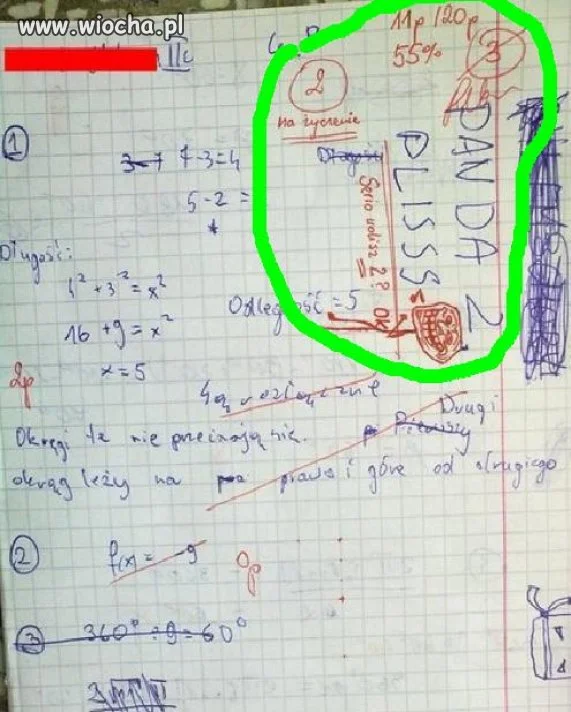 www.wiocha.pl
IIc
Gr. B
11p/20p
55%
3
2
na życzenie
PAN DA 2
PLISSS
Serio wolisz 2? OK
1
3-7 7-3=4
5-2=
Długość:
4² + 3² = x²
16 + 9 = x²
x = 5
Odległość = 5
2p
Są rozłączne
Okręgi te nie przecinają się. Drugi
okrąg leży na prawo i górę od drugiego
2
f(x) = -9
0p
3
360° : 9 = 60°